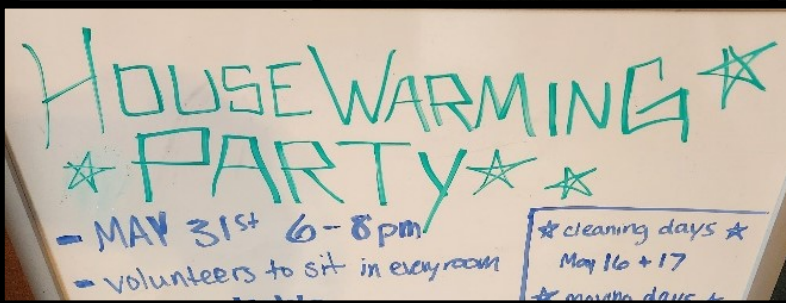 HOUSEWARMING
PARTY
- MAY 31st 6-8pm
- volunteers to sit in every room
cleaning days
May 16 + 17
moving days